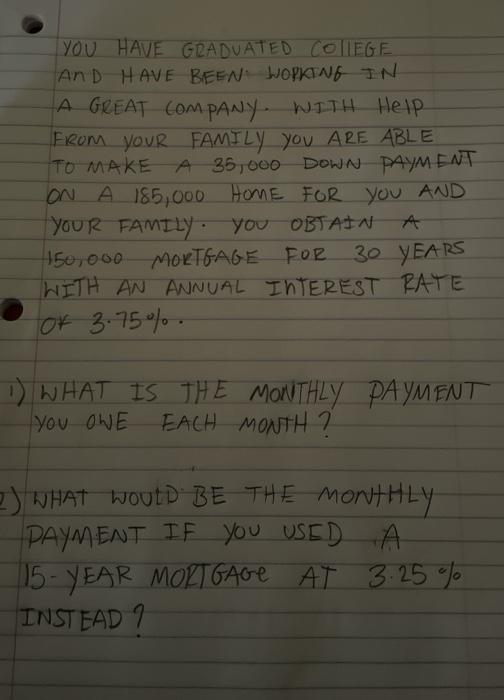 YOU HAVE GRADUATED COllEGE
AnD HAVE BEEN WORKING IN
A GREAT COMPANY. WITH Help
FROM YOUR FAMILY YOU ARE ABLE
TO MAKE A 35,000 DOWN PAYMENT
ON A 185,000 HOME FOR YOU AND
YOUR FAMILY. YOU OBTAIN A
150,000 MORTGAGE FOR 30 YEARS
WITH AN ANNUAL INTEREST RATE
OF 3.75%.
1) WHAT IS THE MONTHLY PAYMENT
YOU OWE EACH MONTH?
2) WHAT WOULD BE THE MONTHLY
PAYMENT IF YOU USED A
15-YEAR MORTGAGe AT 3.25%
INSTEAD?